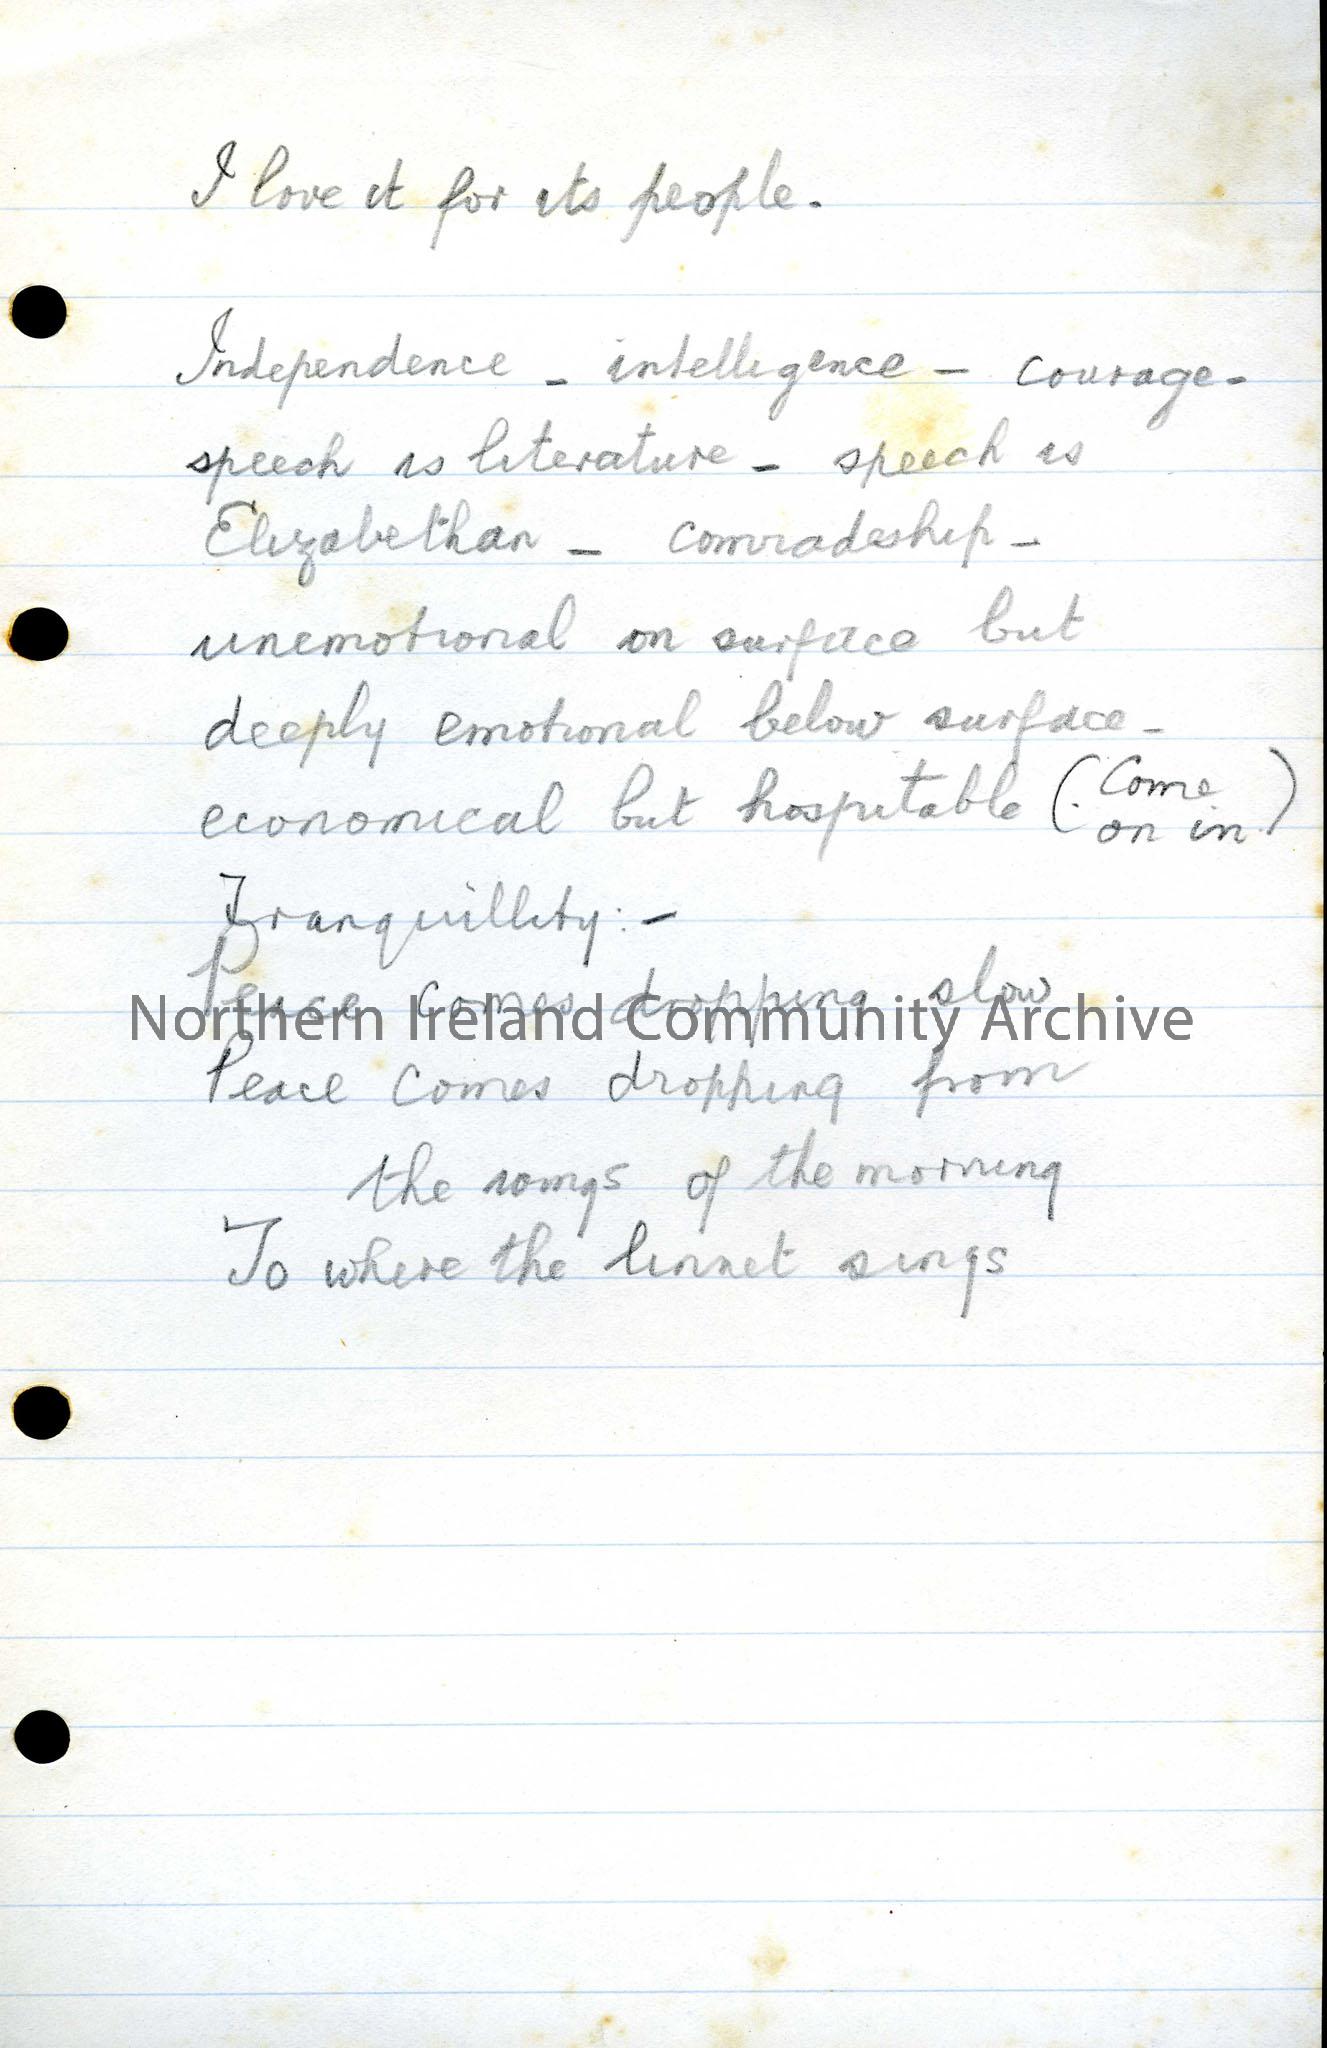 I love it for its people.
Independence - intelligence - courage -
speech is literature - speech is
Elizabethan - comradeship -
unemotional on surface but
deeply emotional below surface -
economical but hospitable (. Come
on in.)
Tranquillity: -
Peace comes dropping slow
Northern Ireland Community Archive
Peace comes dropping from
the of the morning
To where the linnet sings